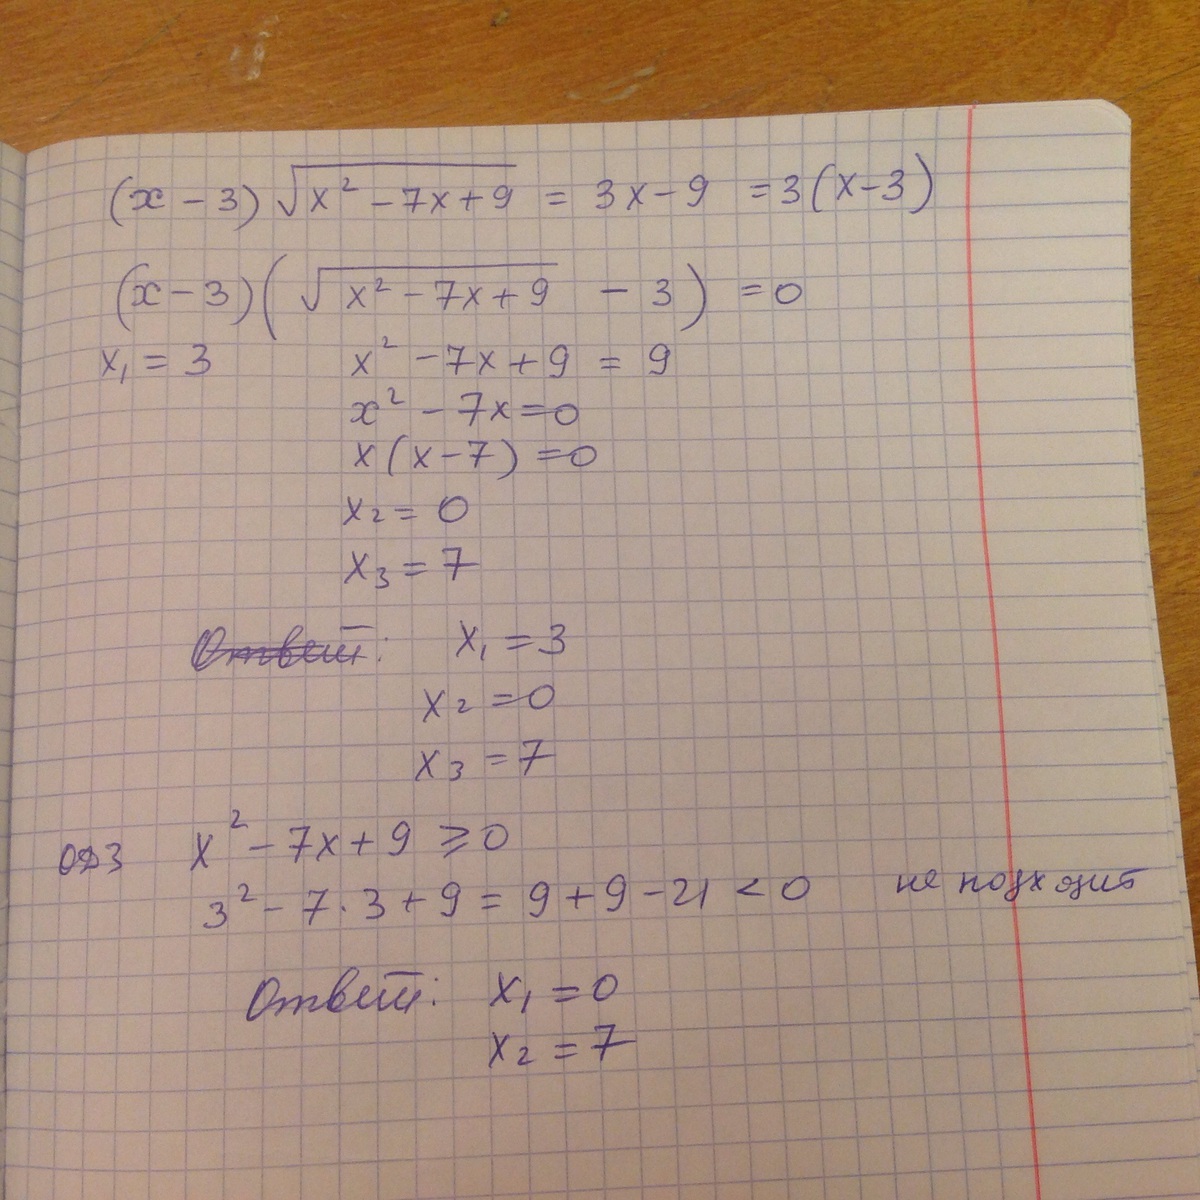 (x - 3) √(x² - 7x + 9) = 3x - 9 = 3(x - 3)
(x - 3)(√(x² - 7x + 9) - 3) = 0
x₁ = 3 x² - 7x + 9 = 9
x² - 7x = 0
x(x - 7) = 0
x₂ = 0
x₃ = 7
Ответ: x₁ = 3
x₂ = 0
x₃ = 7
ОДЗ x² - 7x + 9 ⩾ 0
3² - 7·3 + 9 = 9 + 9 - 21 < 0 не подходит
Ответ: x₁ = 0
x₂ = 7